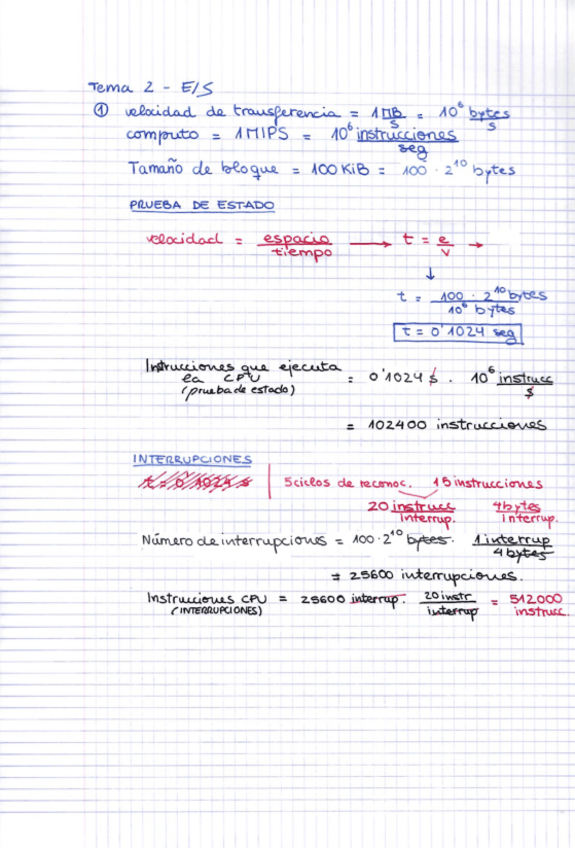 Tema 2 - E/S
① velocidad de transferencia = 1 MB/s = 10⁶ bytes/s
computo = 1 MIPS = 10⁶ instrucciones/seg
Tamaño de bloque = 100 KiB = 100 · 2¹⁰ bytes
PRUEBA DE ESTADO
velocidad = espacio/tiempo → t = e/v →
↓
t = 100 · 2¹⁰ bytes / 10⁶ bytes
t = 0'1024 seg
Intrucciones que ejecuta la CPU (prueba de estado) = 0'1024 s · 10⁶ instrucc/s
= 102400 instrucciones
INTERRUPCIONES
t = 0'1024 s | 5 ciclos de reconoc. 15 instrucciones
20 instrucc/interrup. 4 bytes/interrup.
Número de interrupciones = 100·2¹⁰ bytes. 1 interrup/4 bytes
= 25600 interrupciones.
Instrucciones CPU (INTERRUPCIONES) = 25600 interrup. 20 instr/interrup = 512000 instrucc.